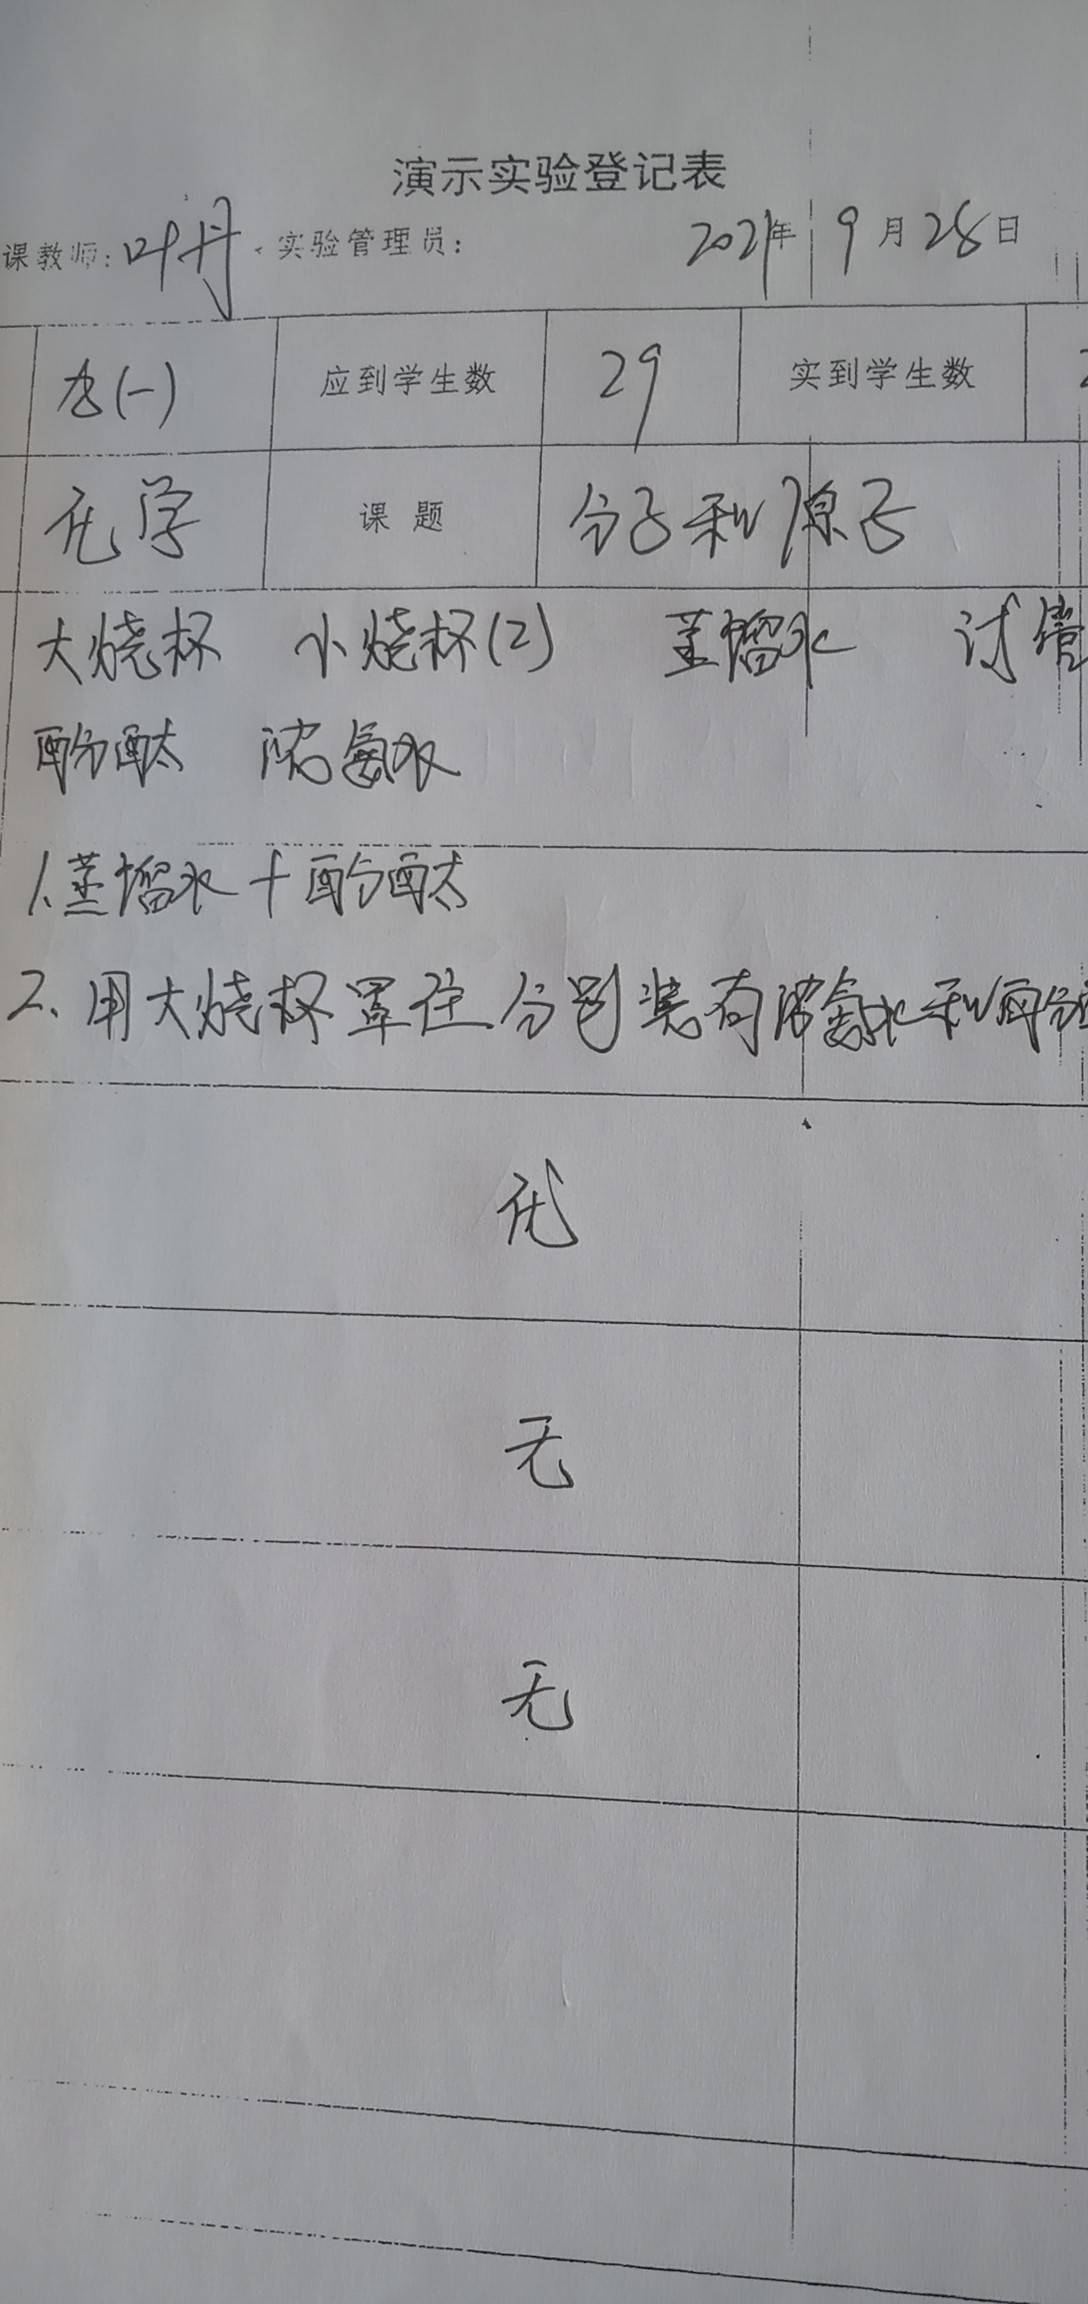 演示实验登记表
课教师：叶丹 实验管理员： 2021年 9月28日
九(一) 应到学生数 29 实到学生数
化学 课题 分子和原子
大烧杯 小烧杯(2) 蒸馏水 试管
酚酞 浓氨水
1.蒸馏水+酚酞
2.用大烧杯罩住分别装有浓氨水和酚
无
无